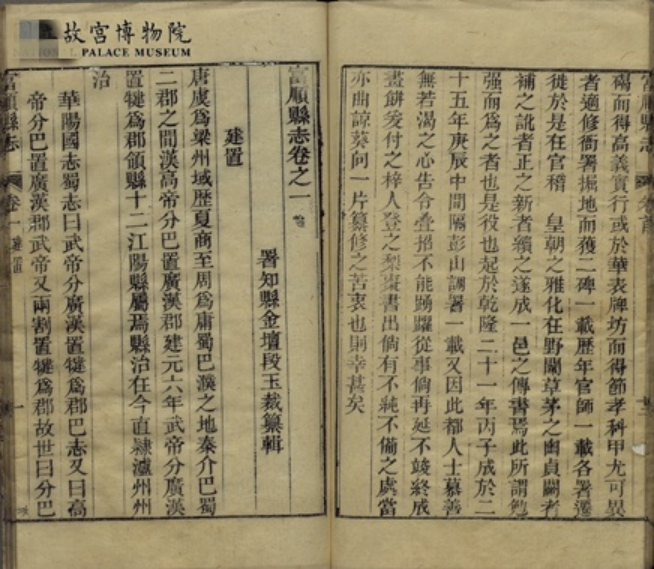 故宮博物院
NATIONAL PALACE MUSEUM
富順縣志 卷首
碣而得高義實行或於華表牌坊而得節孝科甲尤可異
者適修衙署掘地而獲二碑一載歷年官師一載各署遷
徙於是在官稽 皇朝之雅化在野闡草茅之幽貞闕者
補之訛者正之新者續之遂成一邑之傳書焉此所謂勉
强而為之者也是役也起於乾隆二十一年丙子成於二
十五年庚辰中間隔彭山調署一載又因此都人士慕善
無若渴之心告令叠招不能踴躍從事倘再延不竣終成
畫餅爰付之梓人登之梨棗書出倘有不純不備之處當
亦曲諒葵向一片纂修之苦衷也則幸甚矣
富順縣志卷之一
署知縣金壇段玉裁纂輯
建置
唐虞為梁州域歷夏商至周為庸蜀巴濮之地秦介巴蜀
二郡之間漢高帝分巴置廣漢郡建元六年武帝分廣漢
置犍為郡領縣十二江陽縣屬焉縣治在今直隸瀘州州
治
華陽國志蜀志曰武帝分廣漢置犍為郡巴志又曰高
帝分巴置廣漢郡武帝又兩割置犍為郡故世曰分巴
富順縣志 卷一 建置 一